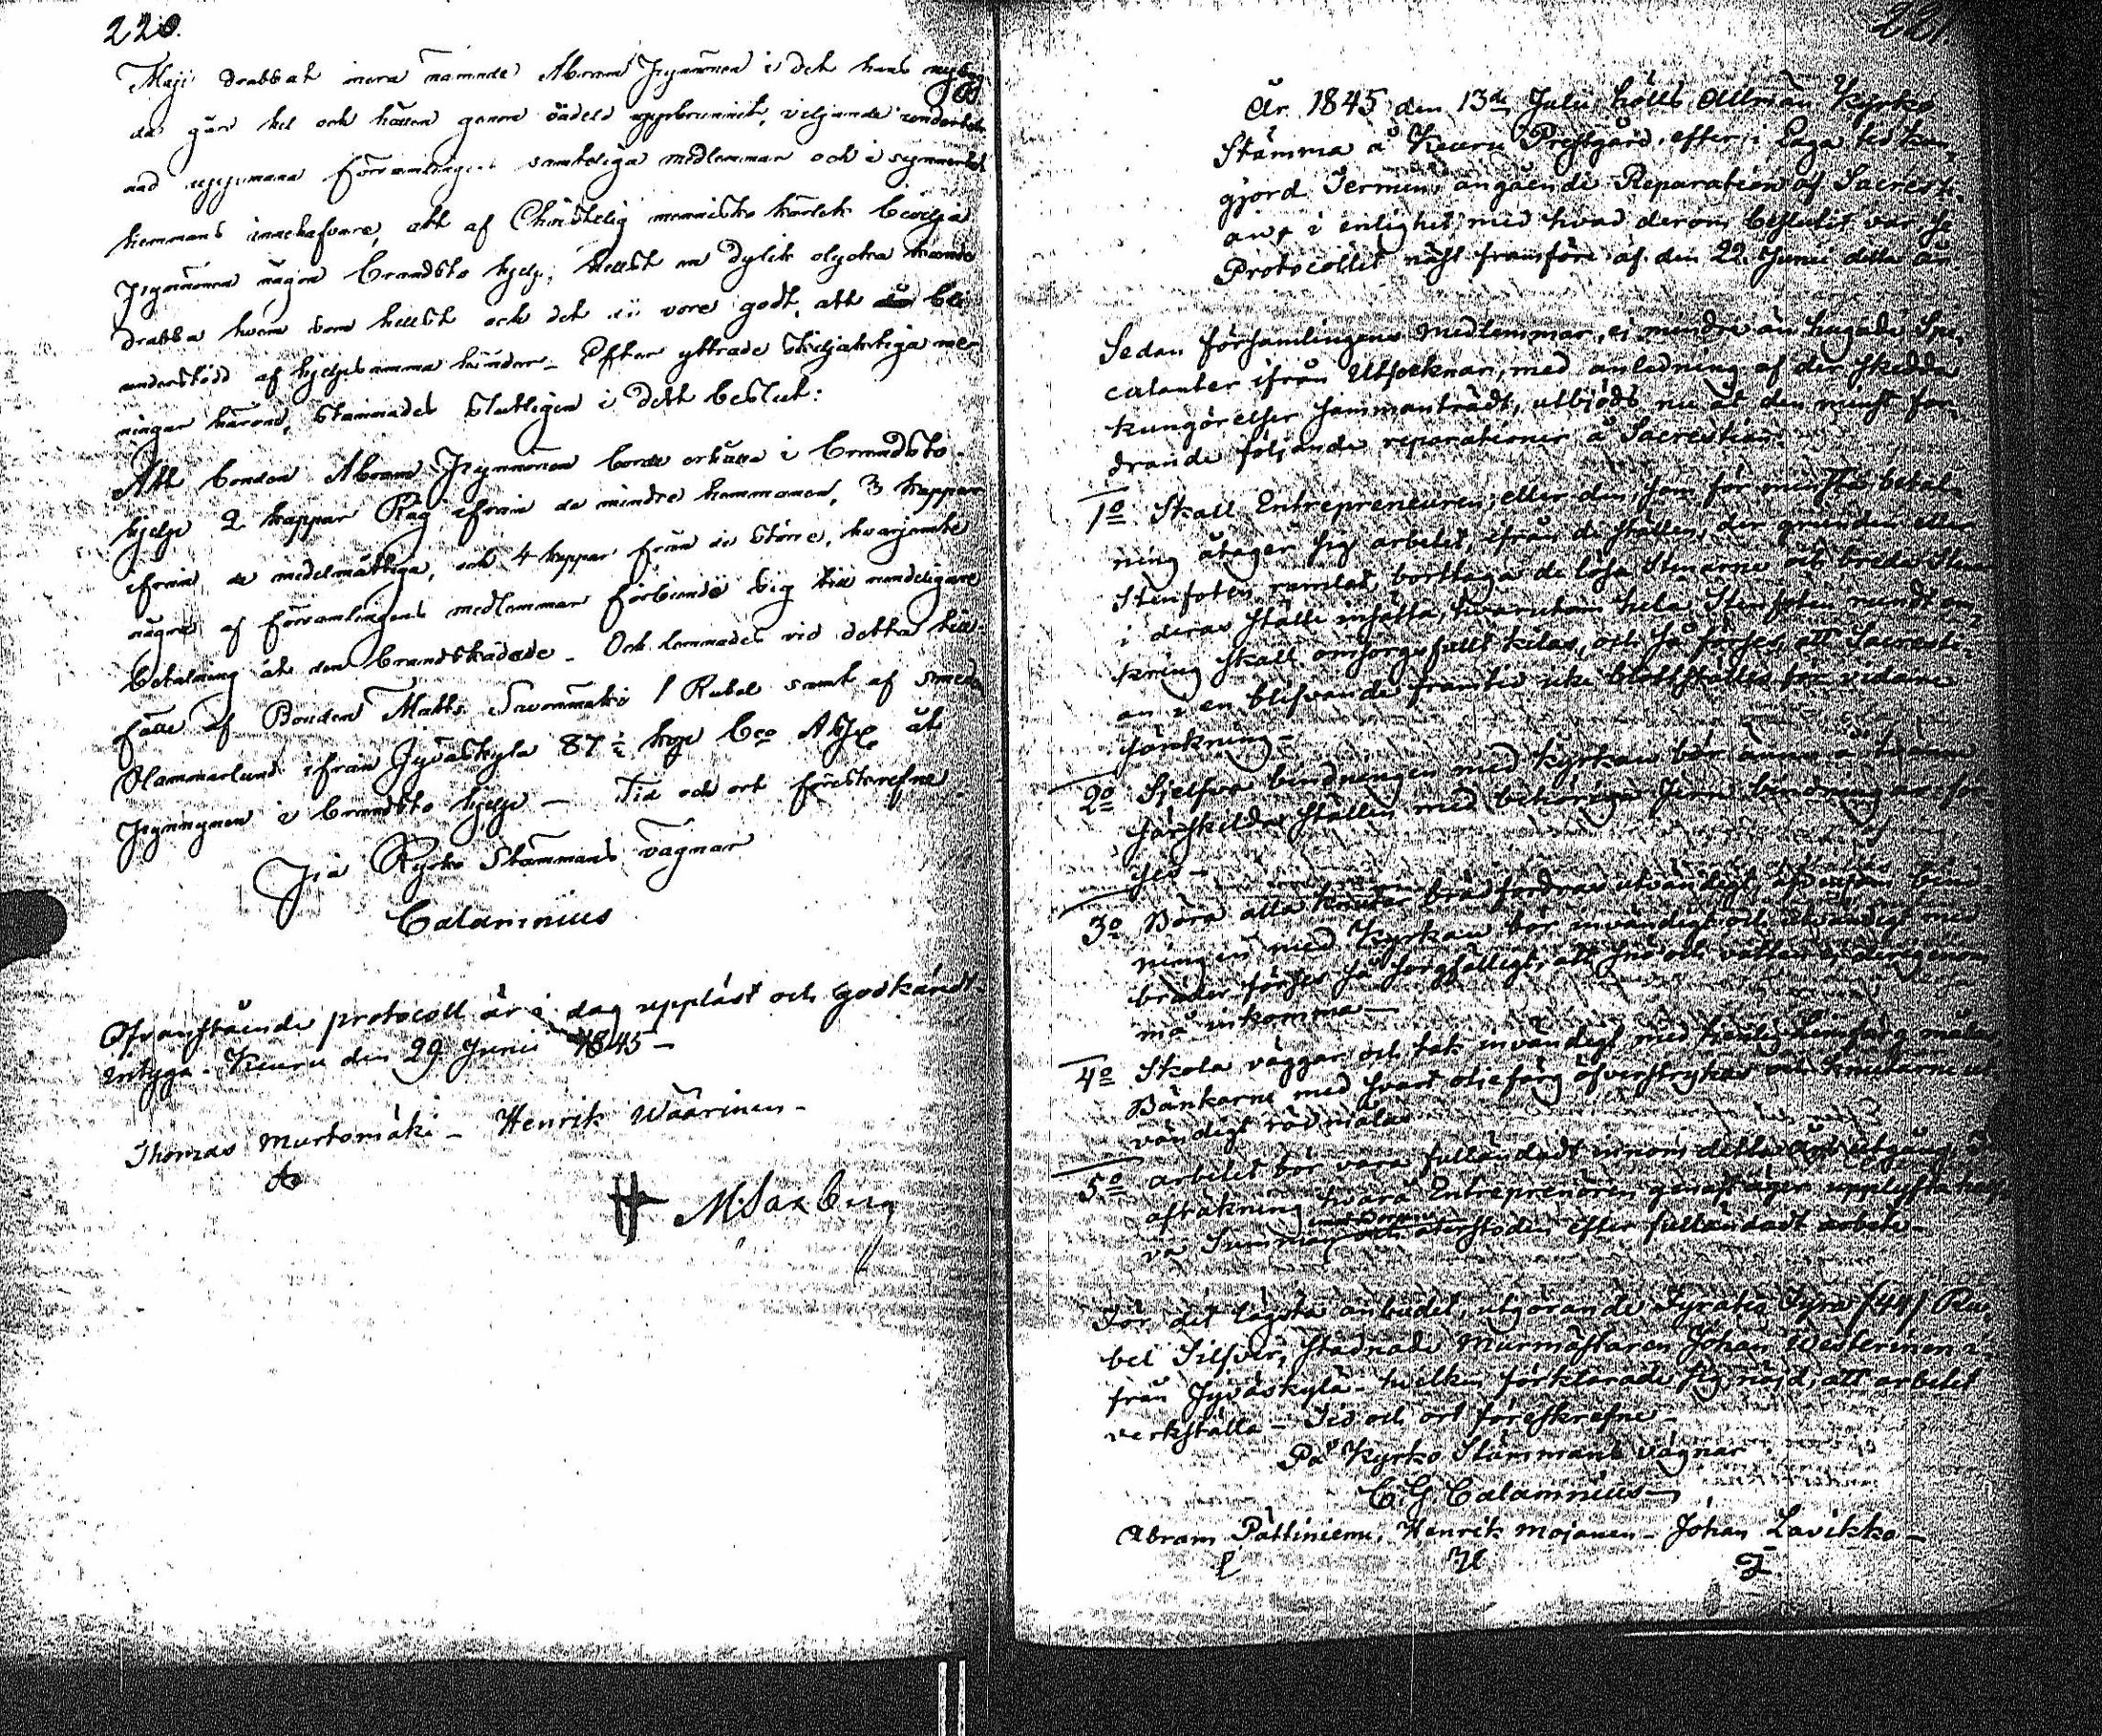 220.
Maji drabbat mera nämnde Abram Jyrinönen i det hans nybyg
da gård hel och hållen genom vådeld uppbrunnit, viljande
uppmana Församlingens samteliga medlemmar och i synnerhet
hemmans innehafvare, att af Christelig mennisko kärlek bevilja
någon brandsto hjelp, hellst en dylik olycka kunde
drabba hvem som hellst och det då vore godt, att bli
understödd af hjelpsamma händer. Efter yttrade skiljaktiga me
ningar härom, stannades slutligen i dett beslut:
Att bonden Abram borde erhålla i brandsto
hjelp 2 kappar Råg ifrån de mindre hemmanen, 3 kappar
ifrån de medelmåttiga, och 4 kappar från de större, hvarjemte
några af Församlingens medlemmar förbundo sig till
betalning åt den brandskadade. Och lemnades vid detta till
fälle af Bonden Matts Savonmäki 1 Rubel samt af Smeden
Hammarlund ifrån Jyväskylä 87 ½ kop bco Assg åt
i brandsto hjelp — Tid och ort föreskrefne.
På Kyrko Stämmans vägnar
Calamnius
Ofvanstående protocoll är i dag uppläst och godkändt
intyga. Keuru den 29 Junii 1845 —
Thomas Murtomäki — Henrik Wäärinen —
M Saxberg
221.
År 1845 den 13de Julii hölls Allmän Kyrko
Stämma å Keuru Prestgård, efter i Laga tid kun,
gjord Termin angående Reparation af Sacresti,
an, i enlighet med hvad derom beslutit var se
Protocollet näst framföre af den 22 Junii detta år.
Sedan församlingens Medlemmar, ej mindre än hugade Spe,
culanter ifrån Utsoknar, med anledning af der skedda
kungörelser sammanträdt, utbjöds nu åt den minst for,
drande följande reparationer å Sacrestian.
1o Skall Entrepreneuren, eller den, som för minsta betal,
ning åtager sig arbetet, ifrån de ställen, der grunden eller
Stenfoten ramlat, borttaga de lösa Stenarne och breda Stenar
i deras ställe insätta, hvarutom hela Stenfoten rundt om,
kring skall omsorgsfullt kilas, och så förses, att Sacresti,
an i en blifvande framtid icke blottställes för vidare
sänkning —
2o Sjelfva bindningen med Kyrkan bör ännu å tvänne
särskilda ställen med behöriga Jern bindningar för
ses —
3o Böra alla knutar brädfodras utvändigt, äfvensom bind
ningen med Kyrkan bör invändigt och utvändigt med
bräder förses så sorgfälligt, att snö och vatten ej derigenom
må inkomma —
4o Skola väggar och tak invändigt med hvitlig Limfärg målas
Bänkarne med svart oliefärg öfverstrykas och knutarne ut
vändigt rödmålas
5o arbetet bör vara fulländadt innom detta års utgång. I
afräkning hvarå Entreprenören genast äger upplyfta half
va Summan och återstoden efter fulländadt arbete —
För det lägsta anbudet, utgörande Fyratio Fyra (44) Ru,
bel Silfver, stadnade Murmästaren Johan Westerinen i
från Jyväskylä — hvilken förklarade sig nöjd, att arbetet
verkställa — Tid och ort föreskrefne —
På Kyrko Stämmans Vägnar
C. G. Calamnius —
Abram Pättiniemi, Henrik Mojanen — Johan Lavikka —